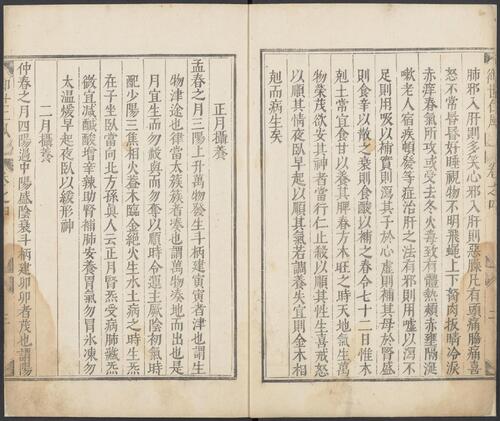 肺邪入肝則多笑心邪入肝則惡臊凡有頭痛腸痛喜
怒不常昏昏好睡視物不明飛蠅上下胬肉扳睛冷淚
赤痒春氣所攻或受去冬火毒致有體熱頰赤壅隔涎
嗽老人宿疾頓發等症治肝之法有邪則用噓以瀉不
足則用吸以補實則瀉其子於心虛則補其母於腎盛
則食辛以散之衰則食酸以補之春令七十二日惟木
剋土常宜食甘以養其脾春方木旺之時天地氣生萬
物榮茂欲安其神者當行仁止殺以順其性生喜戒怒
以順其情夜臥早起以順其氣若調養失宜則金木相
剋而病生矣
正月攝養
孟春之月三陽上升萬物發生斗柄建寅寅者津也謂生
物津途也律當太族族者奏也謂萬物奏地而出也是
月宜生而勿殺與而勿奪以順時令運主厥陰初氣時
配少陽三焦相火養木臨金絕火生水土病之時生炁
在子坐臥當向北方孫眞人云正月腎炁受病肺藏炁
微宜減鹹酸增辛辣助腎補肺安養胃氣勿冒氷凍勿
太溫煖早起夜臥以緩形神
二月攝養
仲春之月四陽過中陽盛陰衰斗柄建卯卯者茂也謂陽